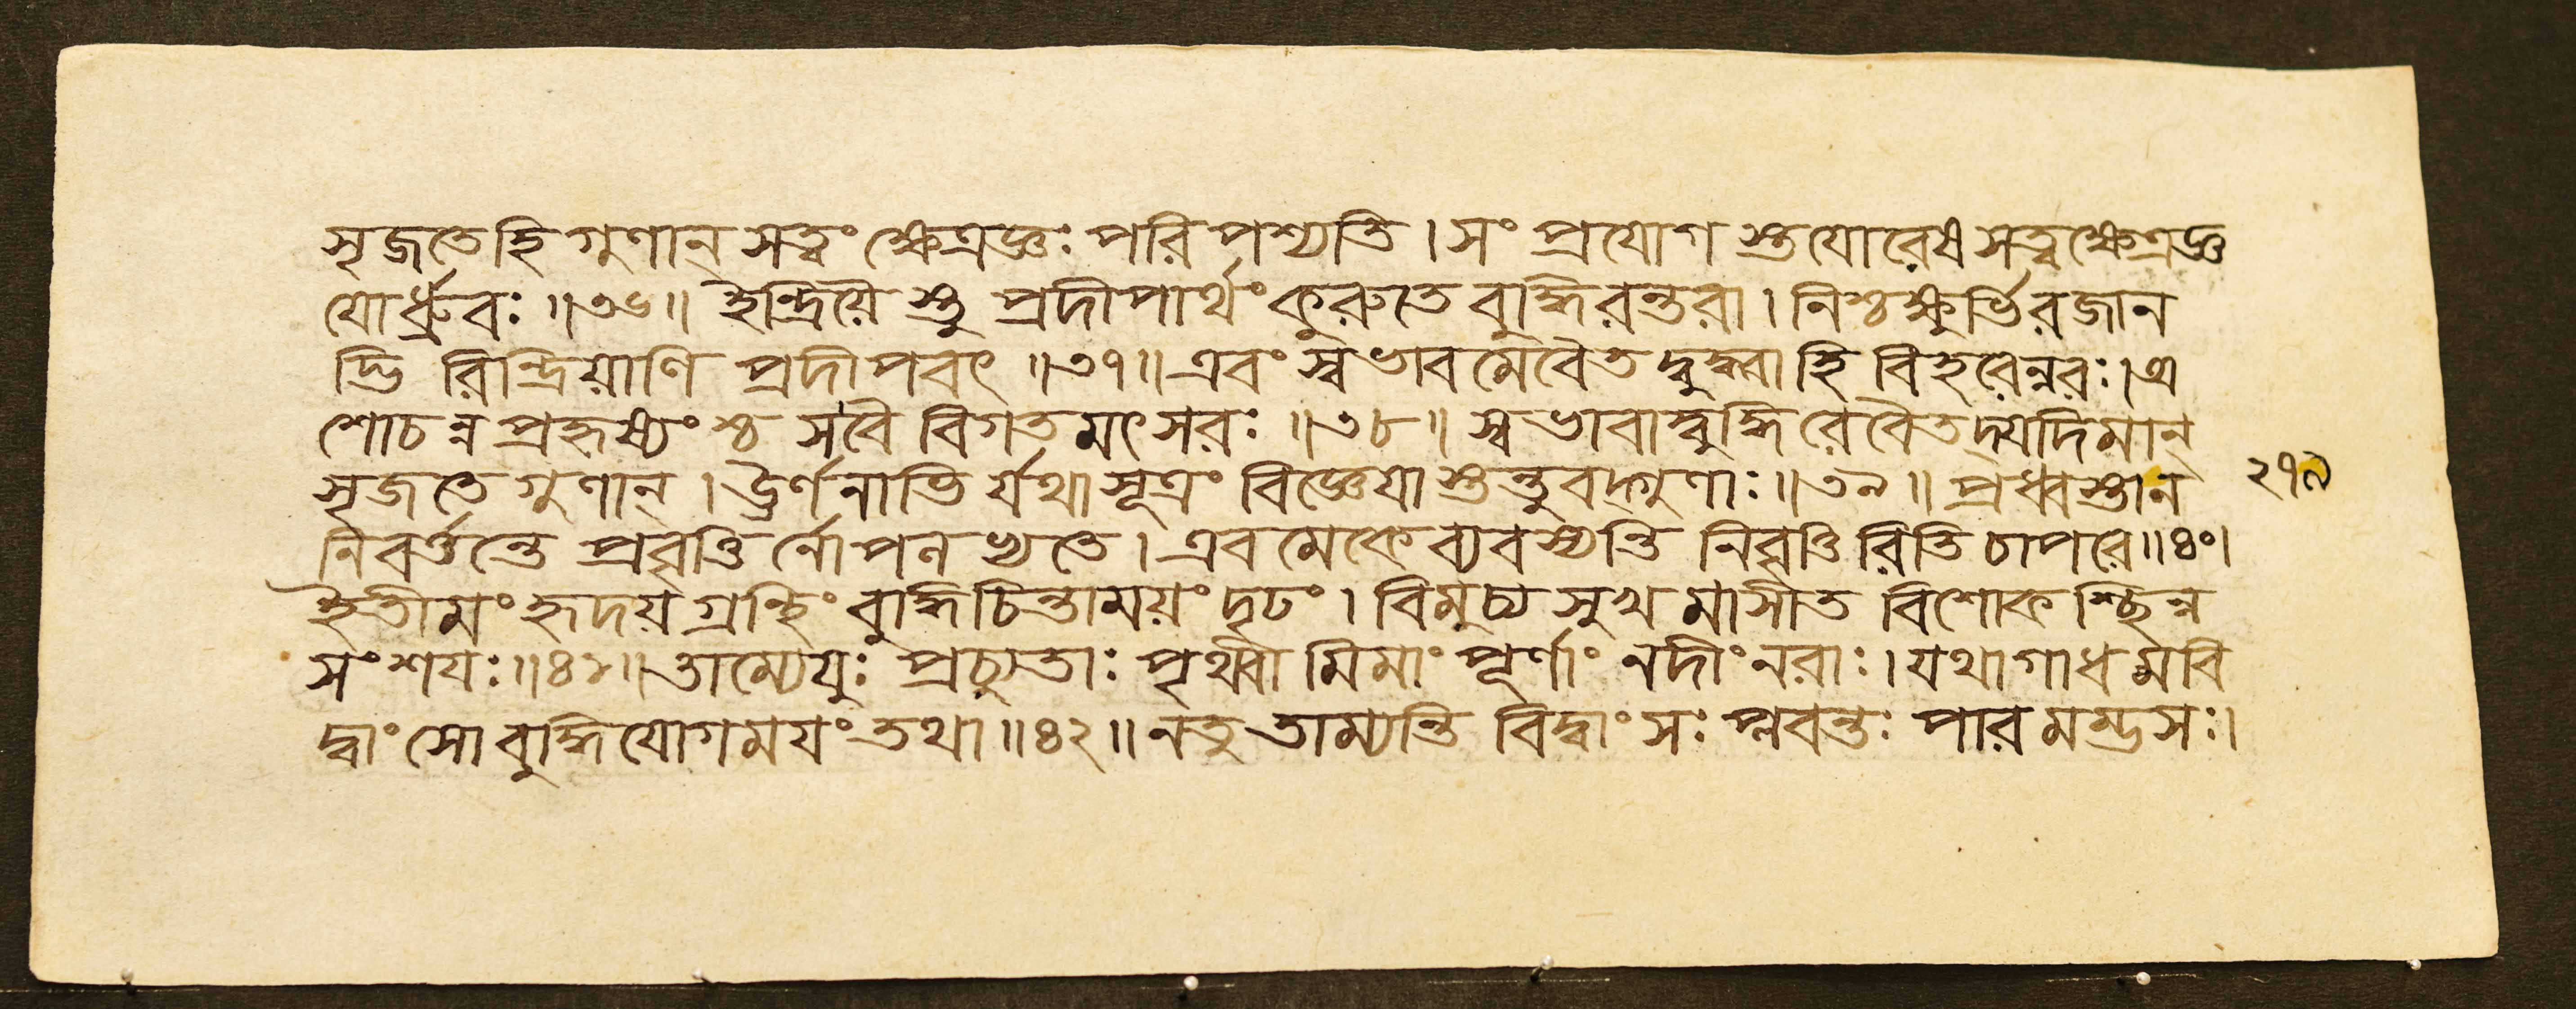 সৃজতেহি গুণান্ সত্বং ক্ষেত্রজ্ঞঃ পরি পশ্যতি । সং প্রযোগ স্তযোরেষ সত্বক্ষেত্রজ্ঞ
যোর্ধ্রুবঃ ॥৩৬॥ ইন্দ্রিয়ৈ স্তু প্রদীপার্থং কুরুতে বুদ্ধিরন্তরা । নিশ্চক্ষুর্ভিরজান
দ্ভি রিন্দ্রিয়াণি প্রদীপবৎ ॥৩৭॥ এবং স্বভাব মেবৈত দ্বুদ্ধ্বা হি বিহরেন্নরঃ । অ
শোচ ন্ন প্রহৃষ্যং শ্চ সবৈ বিগতমৎসরঃ ॥৩৮॥ স্বভাবাদ্বুদ্ধি রেবৈতদ্যদিমান্
সৃজতে গুণান্ । ঊর্ণনাভি র্যথা সূত্রং বিজ্ঞেযা স্তন্তুবদ্গুণাঃ ॥৩৯॥ প্রধ্বস্তান
নিবর্ত্তন্তে প্রবৃত্তি র্নোপলভ্যতে । এব মেকে ব্যবস্যন্তি নিবৃত্তি রিতি চাপরে ॥৪০।
ইতীমং হৃদয়গ্রন্থিং বুদ্ধিচিন্তাময়ং দৃঢং । বিমুচ্য সুখ মাসীত বিশোক শ্ছিন্ন
সংশযঃ ॥৪১॥ তাম্যেযুঃ প্রচ্যুতাঃ পৃথ্বী মিমাং পূর্ণাং নদীং নরাঃ । যথাগাধ মবি
দ্বাং সো বুদ্ধিযোগমযং তথা ॥৪২॥ নতু তাম্যন্তি বিদ্বাংসঃ প্লবন্তঃ পার মম্ভসঃ ।
২৭৯